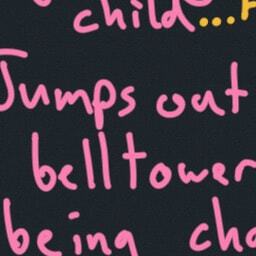 child...
Jumps out
belltower
being